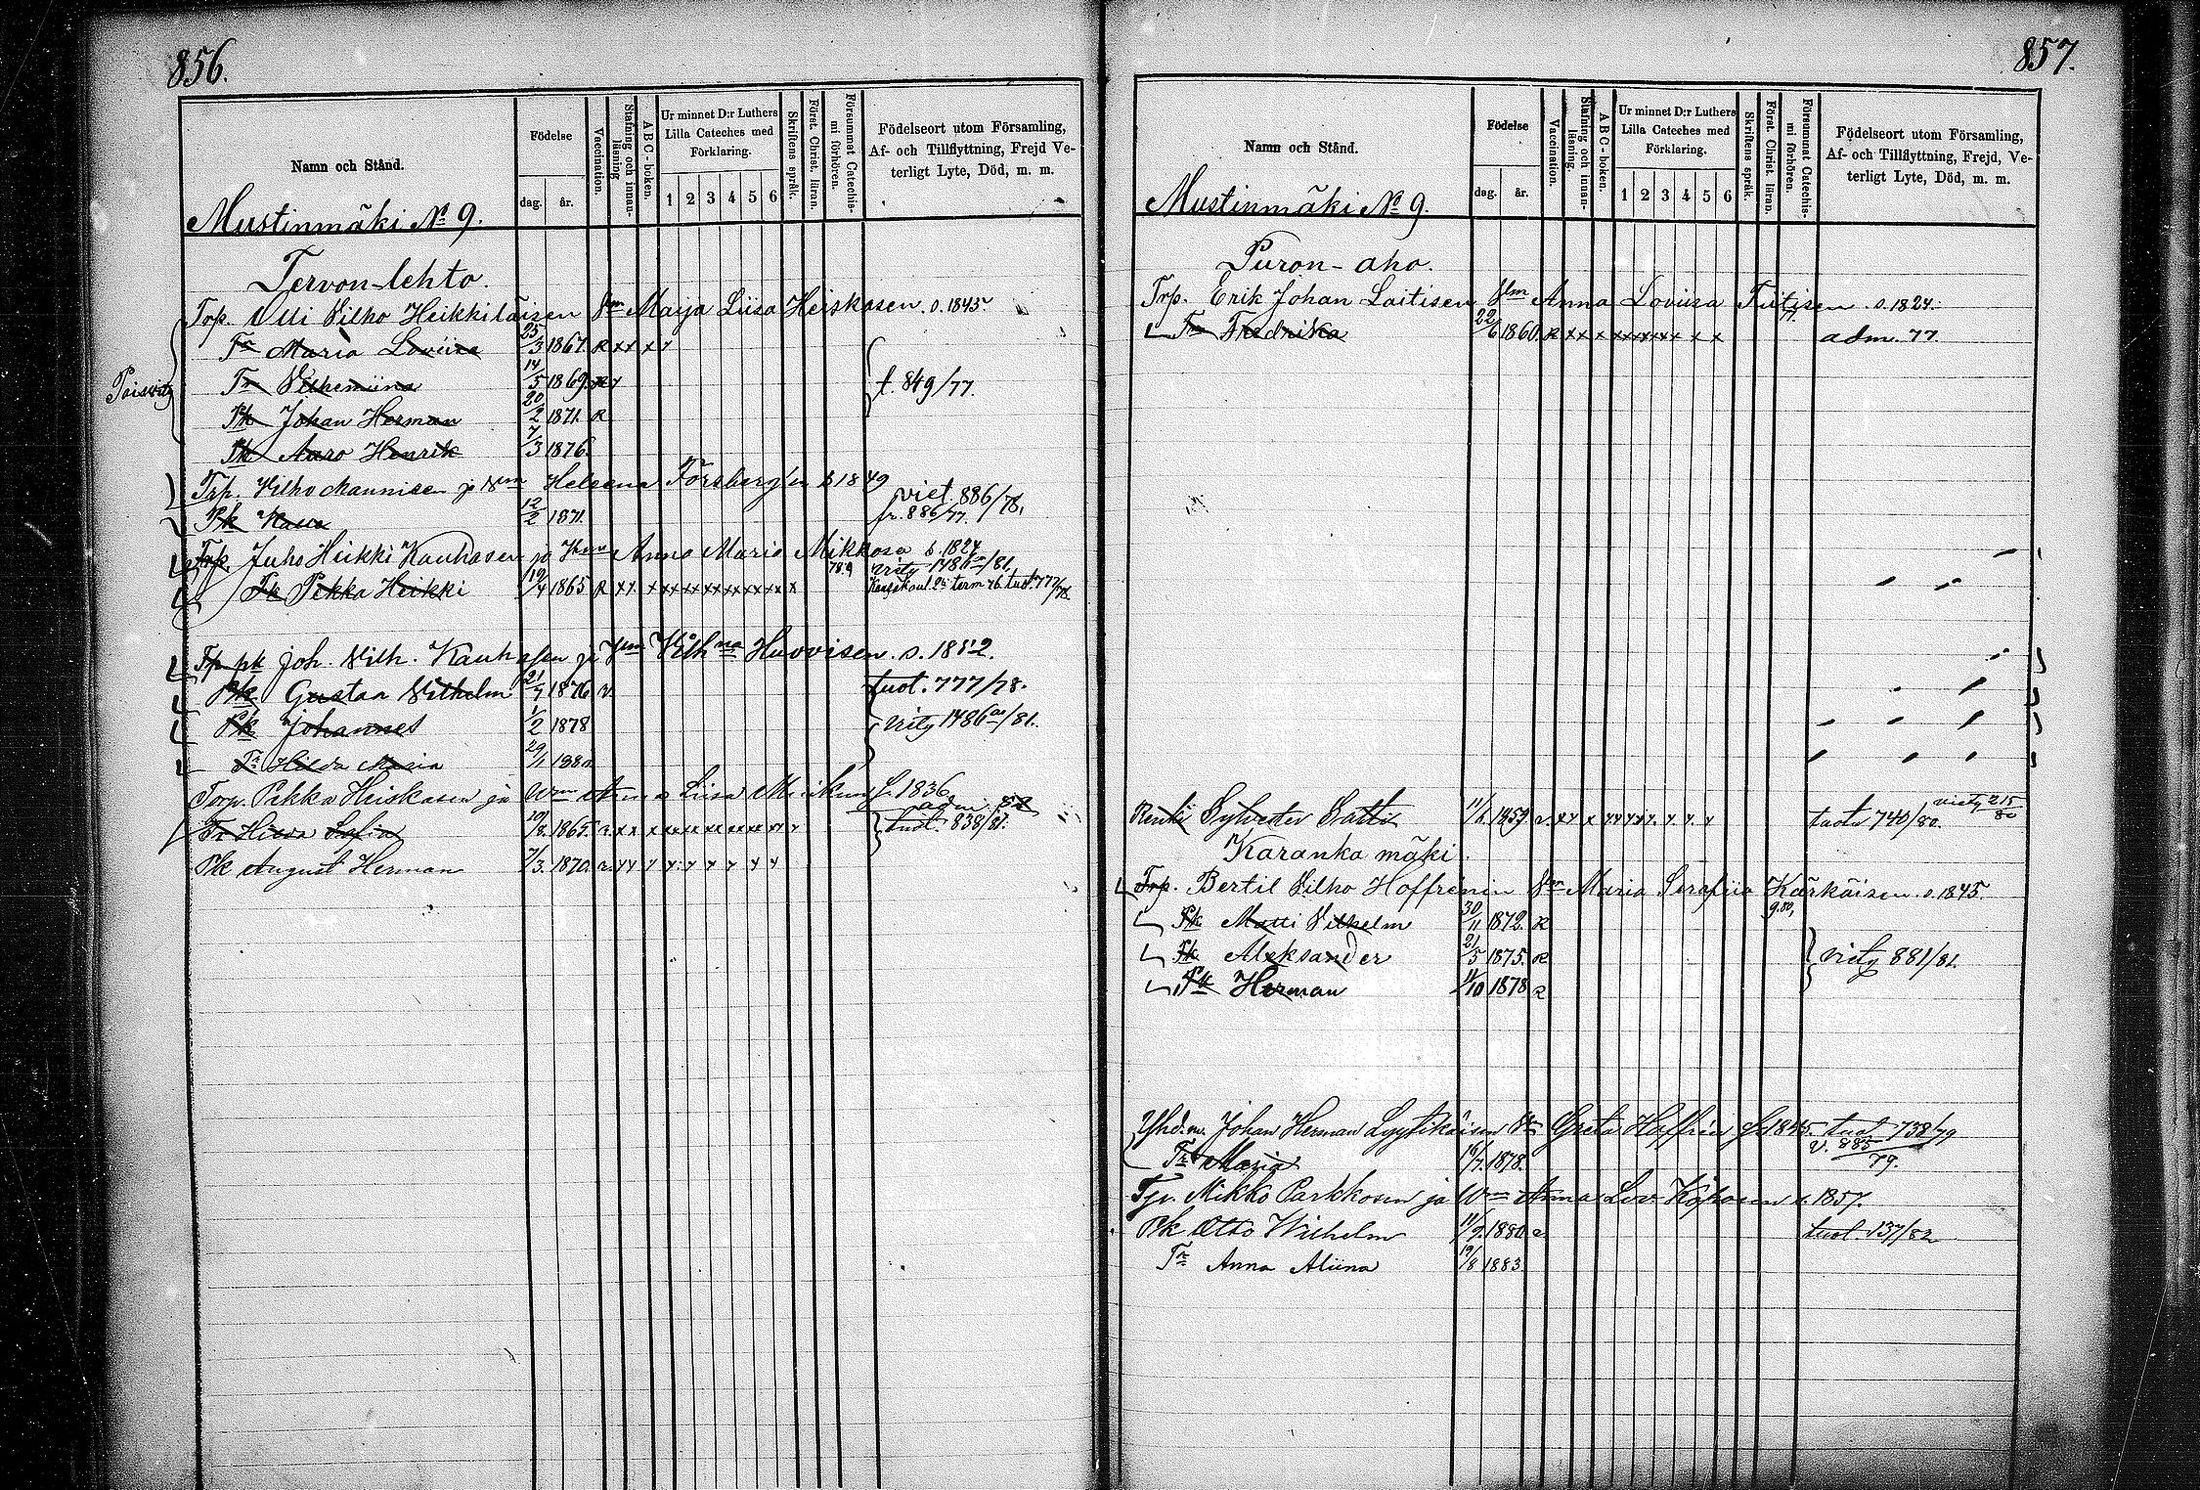 856.
Namn och Stånd.
Födelse
dag.
år.
Vaccination.
Stafning och innanläsning.
A B C-boken.
Ur minnet D:r Luthers
Lilla Cateches med
Förklaring.
1 2 3 4 5 6
Skriftens språk.
Först. Christ. läran.
Försummat Catechismi förhören.
Födelseort utom Församling,
Af- och Tillflyttning, Frejd Ve-
terligt Lyte, Död, m. m.
Mustinmäki No 9.
Tervon-lehto.
Trp. Olli Vilho Heikkiläisen Vm Marja Liisa Heiskasen s. 1845.
Tr Maria Loviisa 25/3 1867. R x x x x
Tr Vilhemiina 14/5 1869. f. 849/77.
Pk Johan Herman 20/2 1871. R
Pk Aaro Henrik 7/3 1876.
Trp. Vilho Mannisen ja Vm Heleena Forsberg'in s 1849
Pk 12/2 1871. viet 886/78, fr. 886/77.
Trp. Juho Heikki Kauhasen ja Vm Anna Maria Mikkosa s. 1824
Pk Pekka Heikki 19/4 1865 R x x x x x x x x x x x
Trp pk Joh. Vilh. Kauhasen ja Vm Vilhna Huovisen. s. 1852.
Pk Gustaa Vilhelm 21/7 1876. tuot. 777/78.
Pk Johannes 1/2 1878
Tr Hilda Maria 29/1 1880.
Torp. Pekka Heiskasen ja Wm Anna Liisa f. 1836
Tr Sofia 1865. tuot. 838/81.
Pk August Herman 7/3. 1870.
857.
Namn och Stånd.
Födelse
dag.
år.
Vaccination.
Stafning och innanläsning.
A B C-boken.
Ur minnet D:r Luthers
Lilla Cateches med
Förklaring.
1 2 3 4 5 6
Skriftens språk.
Först. Christ. läran.
Försummat Catechismi förhören.
Födelseort utom Församling,
Af- och Tillflyttning, Frejd, Ve-
terligt Lyte, Död, m. m.
Mustinmäki No 9.
Puron-aho.
Trp. Erik Johan Laitisen Vlm Anna Loviisa Tiitisen s. 1824.
Tr Fredrika 22/6 1860. R x x x x x x x x x x x adm. 77.
Renki Sylvester 1859 tuotu 740/80.
Karankamäki
Trp. Bertil Vilho Hoffrenin Vm Maria Serafiia Kärkäisen s. 1845.
Pk Matti Vilhelm 30/11 1872. R
Pk Aleksander 21/5 1875. R
Pk Herman 11/10 1878 R
Johan Herman Lyytikäisen Greta Hoffrén 1845. tuot 738/79
Tr Maria 16/7. 1878.
Mikko Parkkosen ja Wm Anna Lov. s. 1857.
Pk Otto Wilhelm 11/9 1880. tuot 137/82
Tr Anna Aliina 19/8 1883